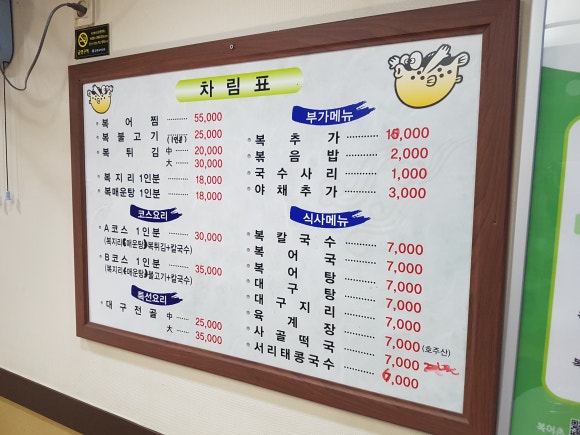 금연구역
차림표
복어찜 55,000
복불고기 (1인분) 25,000
복튀김 中 20,000
大 30,000
복지리 1인분 18,000
복매운탕 1인분 18,000
코스요리
A코스 1인분 30,000
(복지리or매운탕)복튀김+칼국수)
B코스 1인분 35,000
(복지리or매운탕)불고기+칼국수)
특선요리
대구전골 中 25,000
大 35,000
부가메뉴
복추가 10,000
볶음밥 2,000
국수사리 1,000
야채추가 3,000
식사메뉴
복칼국수 7,000
복어국 7,000
복어탕 7,000
대구탕 7,000
대구지리 7,000
육계장 7,000
사골떡국 7,000 (호주산)
서리태콩국수 6,000
복어촌